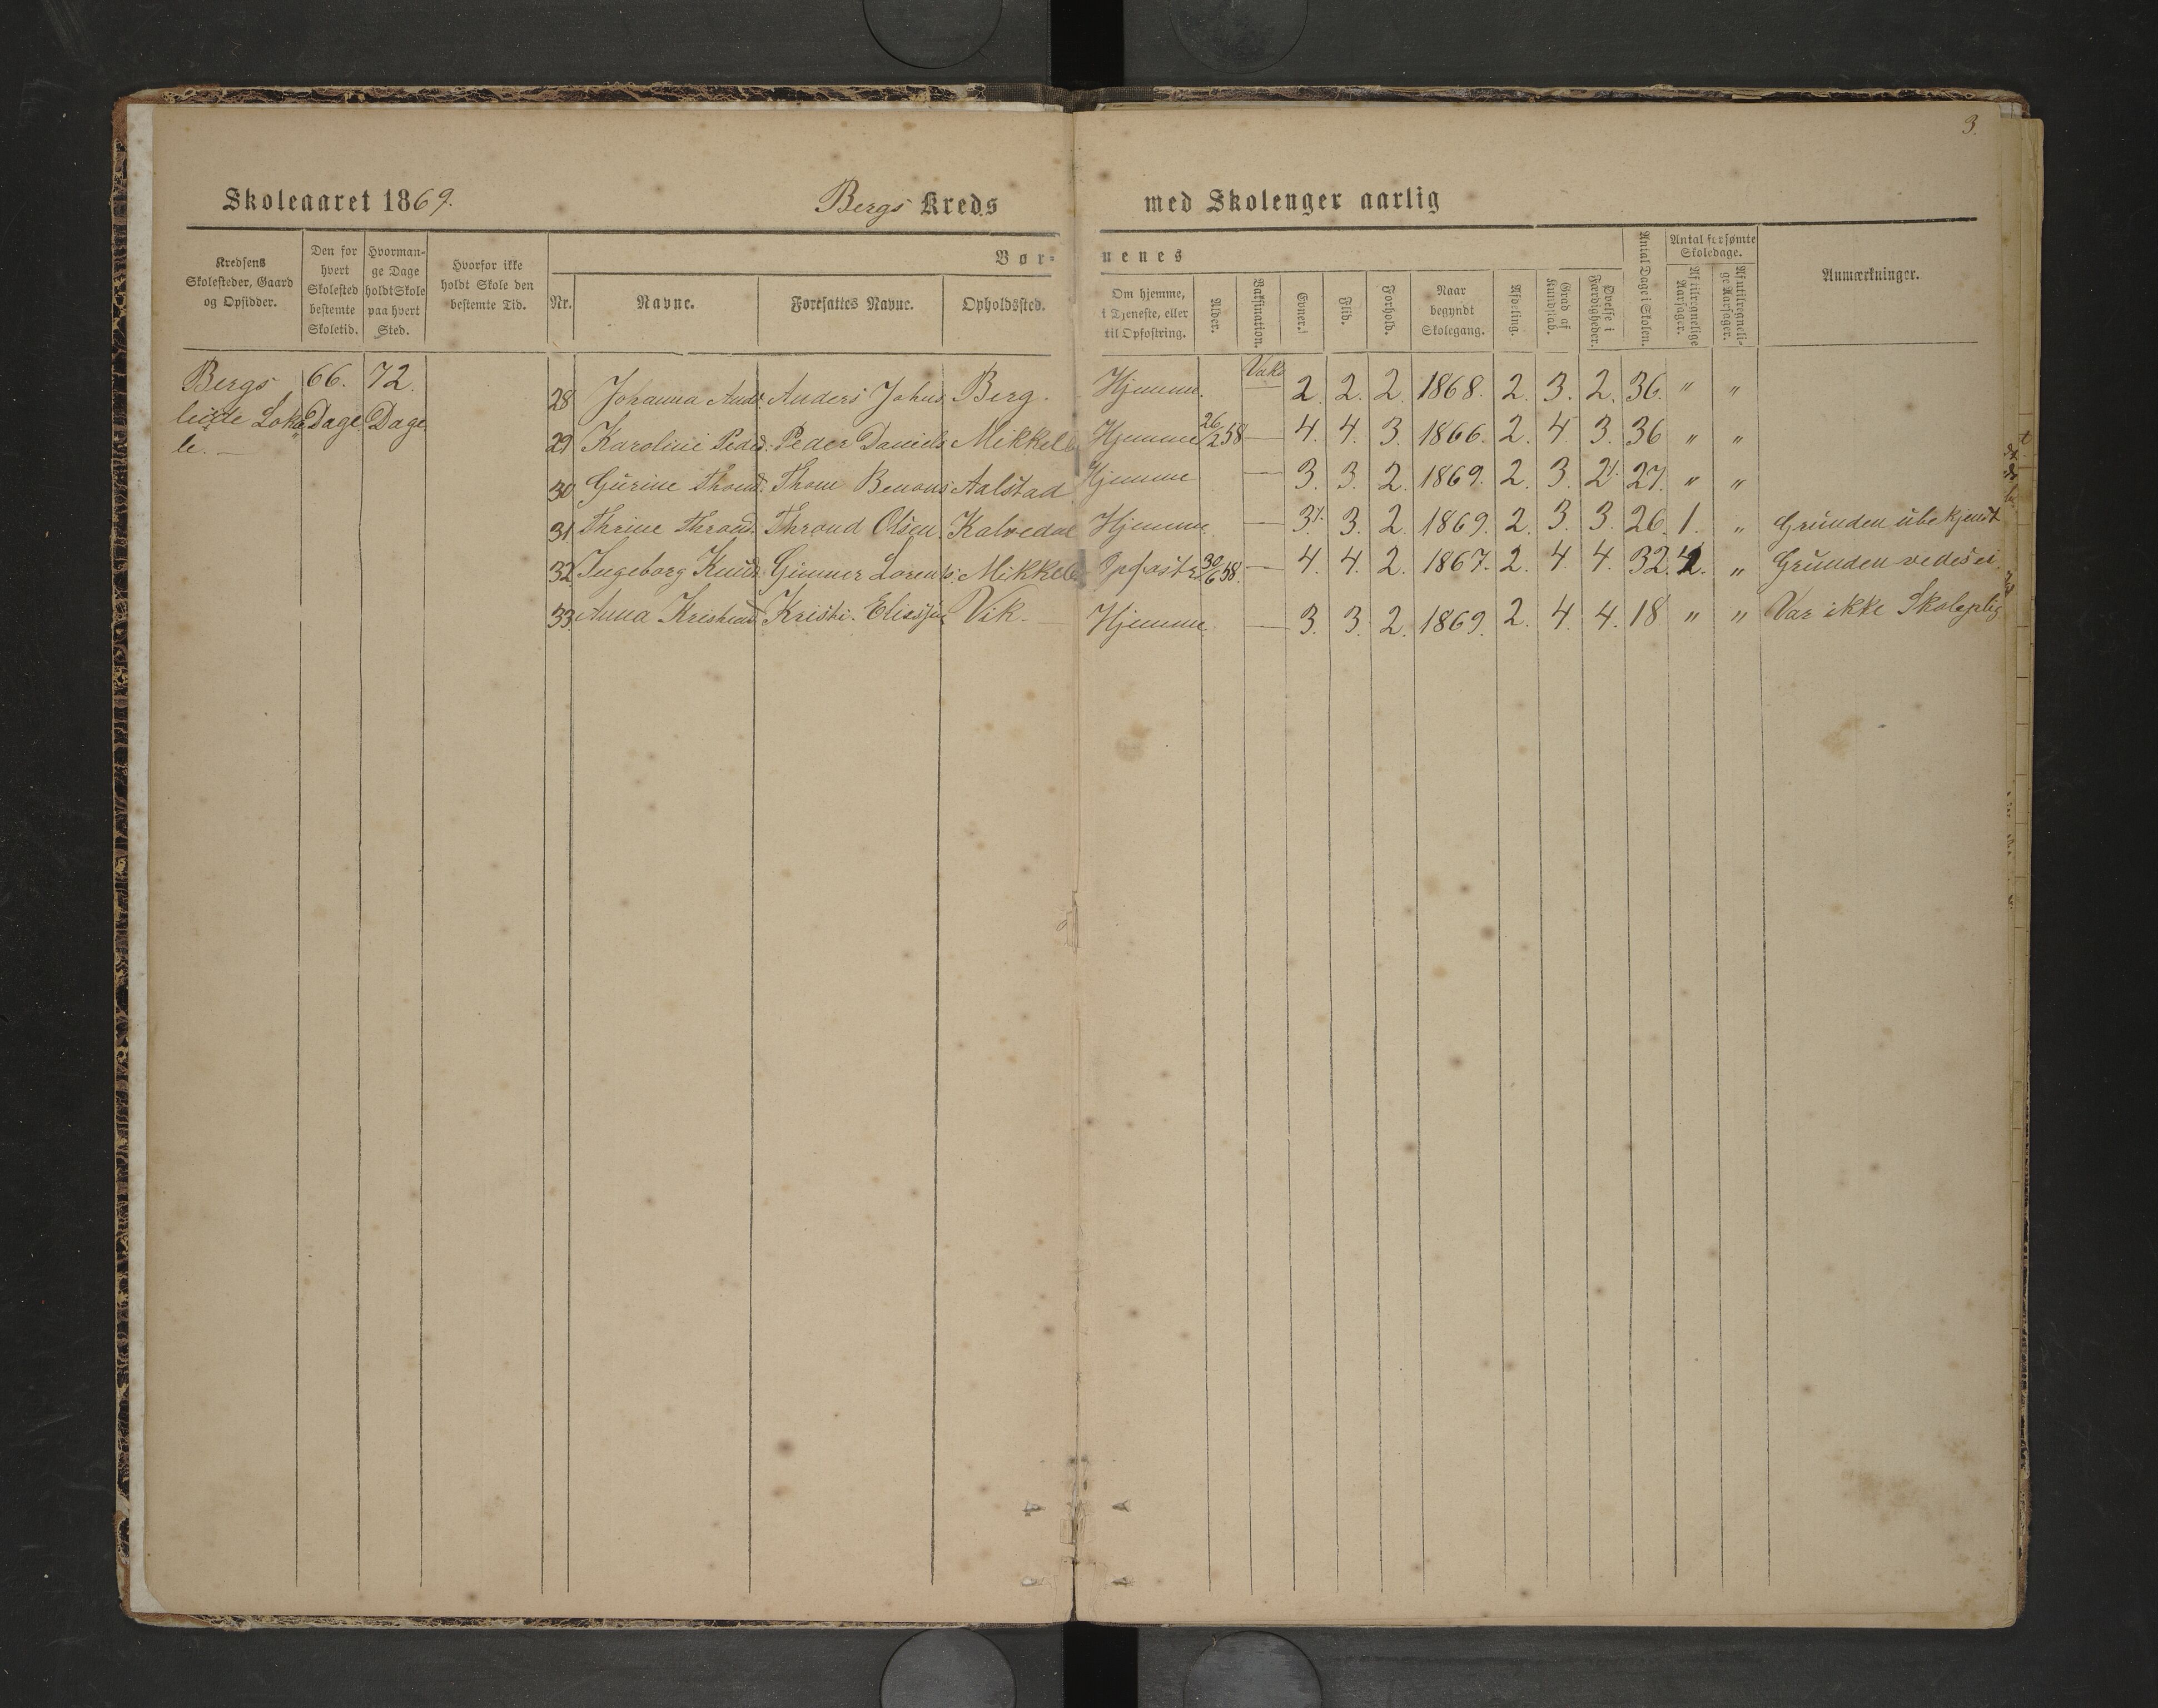 3.
Skoleaaret 1869. Bergs Kreds med Skolenger aarlig
Kredsens Skolesteder, Gaard og Opsidder.
Den for hvert Skolested bestemte Skoletid.
Hvormange Dage holdt Skole paa hvert Sted.
Hvorfor ikke holdt Skole den bestemte Tid.
Børnenes
Nr.
Navne.
Foresattes Navne.
Opholdssted.
Om hjemme, i Tjeneste, eller til Opfostring.
Alder.
Vaksination.
Evner.
Flid.
Forhold.
Naar begyndt Skolegang.
Afdeling.
Grad af Kundskab.
Øvelse i Færdigheder.
Antal Dage i Skolen.
Antal forsømte Skoledage.
Af tilregnelige Aarsager.
Af utilregnelige Aarsager.
Anmærkninger.
Bergs 66. 72.
leiede Loka Dage Dage
le. —
Vak
28 Johanna Andr. Anders Johns Berg. Hjemme. — 2. 2. 2. 1868. 2. 3. 2. 36. " "
29 Karoline Peders. Peder Daniels Mikkelb Hjemme 26/2 58 — 4. 4. 3. 1866. 2. 4. 3. 36 " "
30 Gurine Thomd. Thom Benons Aalstad Hjemme — 3. 3. 2. 1869. 2. 3. 2. 27. " "
31 Thrine Thrond. Thrond Olsen. Kalvedal Hjemme. — 3. 3. 2. 1869. 2. 3. 3. 26. 1. " Grunden ubekjendt
32 Ingeborg Knud. Gunner Lorents. Mikkelb Opfostr 30/6 58. — 4. 4. 2. 1867. 2. 4. 4. 32. 2. " Grunden vedes ei.
33. Anna Kristiand Kristi. Eliesen Vik. — Hjemme — 3. 3. 2. 1869. 2. 4. 4. 18 " " Var ikke Skoleplig